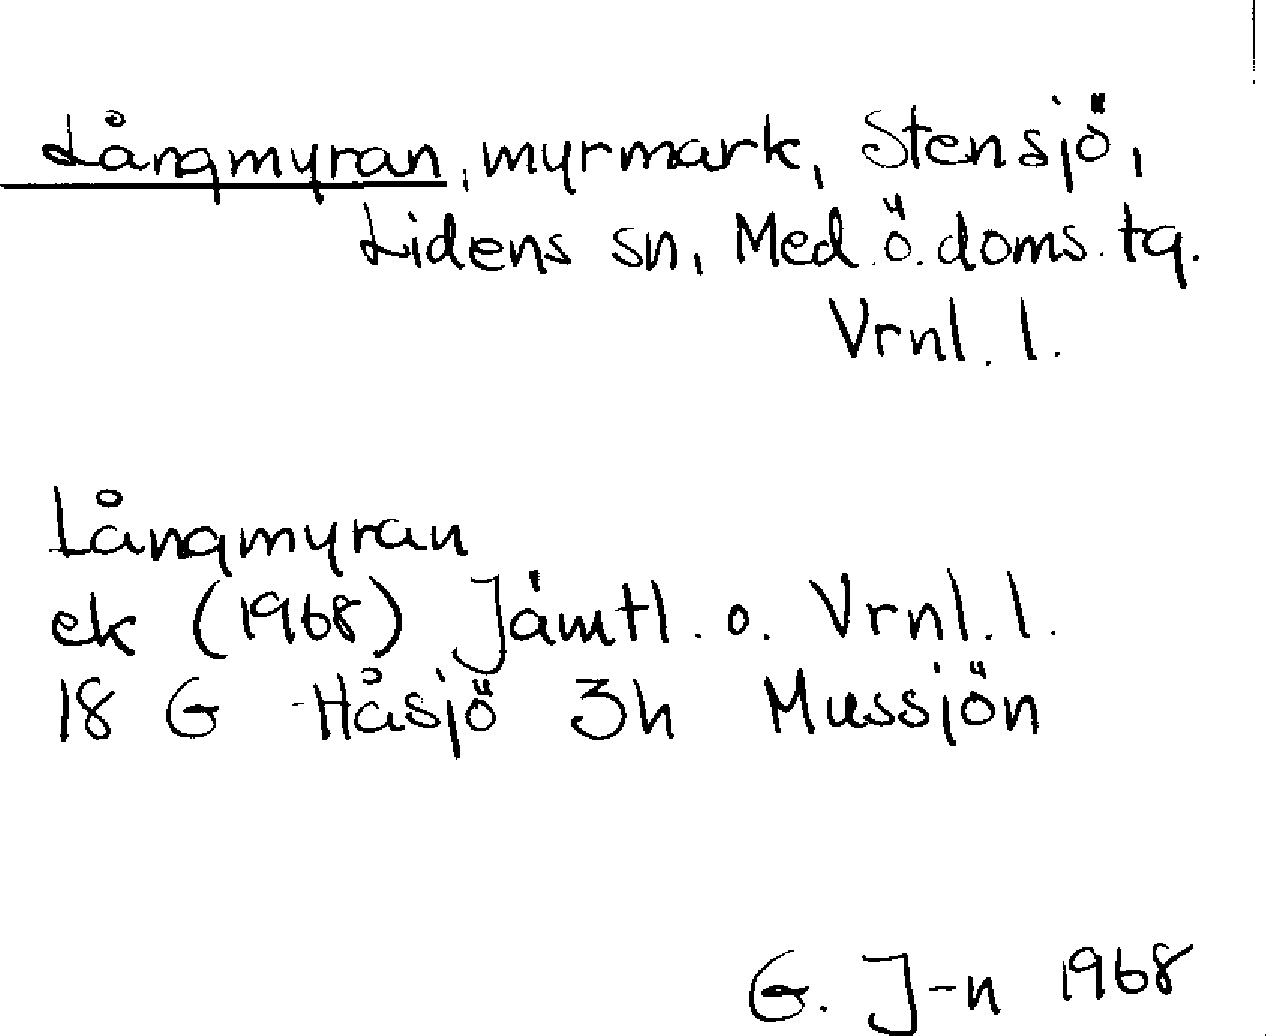 Långmyran, myrmark, Stensjö,
Lidens sn, Med.ö.doms.tg.
Vrnl. l.
Långmyran
ek (1968) Jämtl. o. Vrnl. l.
18 G Håsjö 3h Mussjön
G. J-n 1968